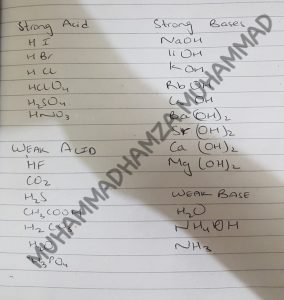 Strong Acid
HI
HBr
HCl
HClO4
H2SO4
HNO3
WEAK ACID
HF
CO2
H2S
CH3COOH
H3PO4
Strong Bases
NaOH
LiOH
KOH
RbOH
CsOH
Ba(OH)2
Sr(OH)2
Ca(OH)2
Mg(OH)2
WEAK BASE
H2O
NH4OH
NH3
MUHAMMADHAMZA MUHAMMAD